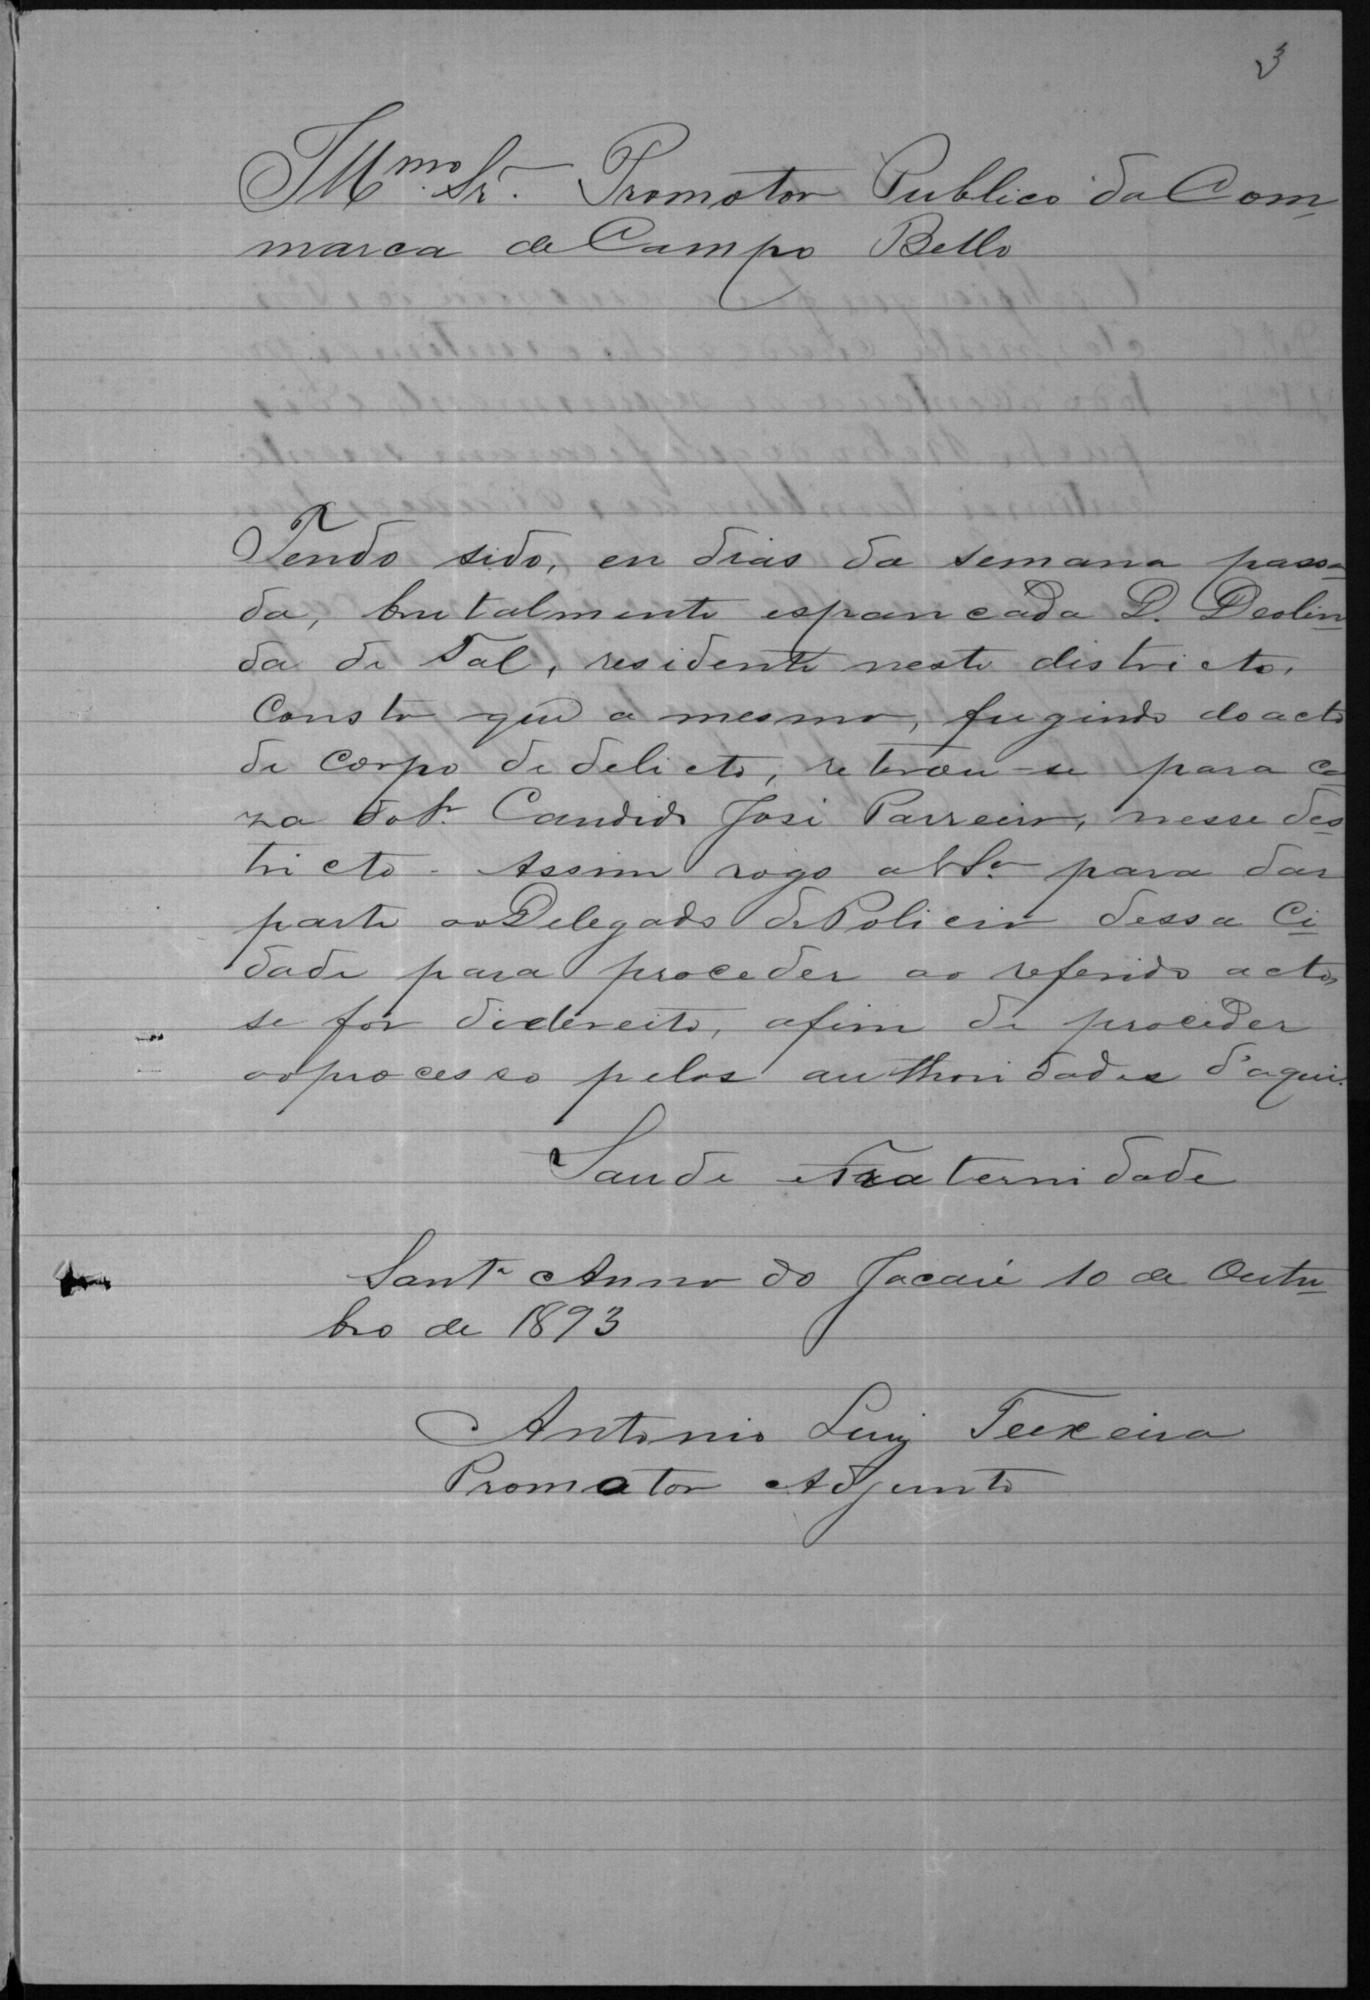 3
Illmo. Sr. Promotor Publico da Com
marca de Campo Bello
Tendo sido, en dias da semana passa
da, brutalmente espancada D. Deolin
da de Tal, residente neste districto,
consta que a mesma, fugindo do acto
de corpo de delicto, retirou-se para ca
za do Sr. Candido José Parreira, nesse des
tricto. Assim rogo a V. Sa. para dar
parte ao Delegado de Policia dessa Ci
dade para proceder ao referido acto,
se for de dereito, afim de proceder
ao processo pelas authoridades d'aqui.
Saude e Fraternidade
Sant'Anna do Jacaré 10 de Outu
bro de 1893
Antonio Luiz Teixeira
Promotor Adjunto